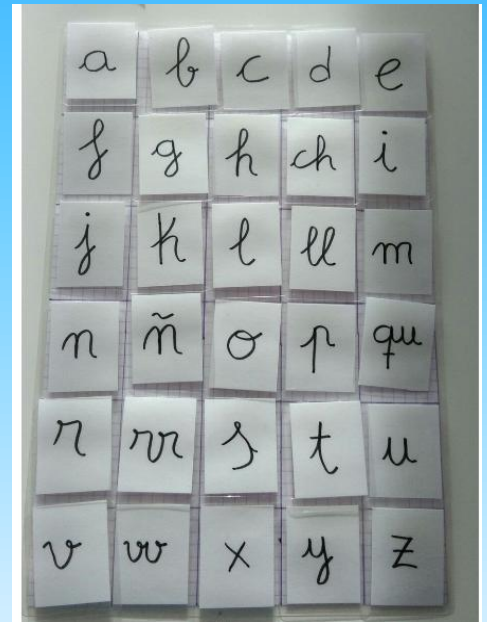 a b c d e
f g h ch i
j k l ll m
n ñ o p qu
r rr s t u
v w x y z